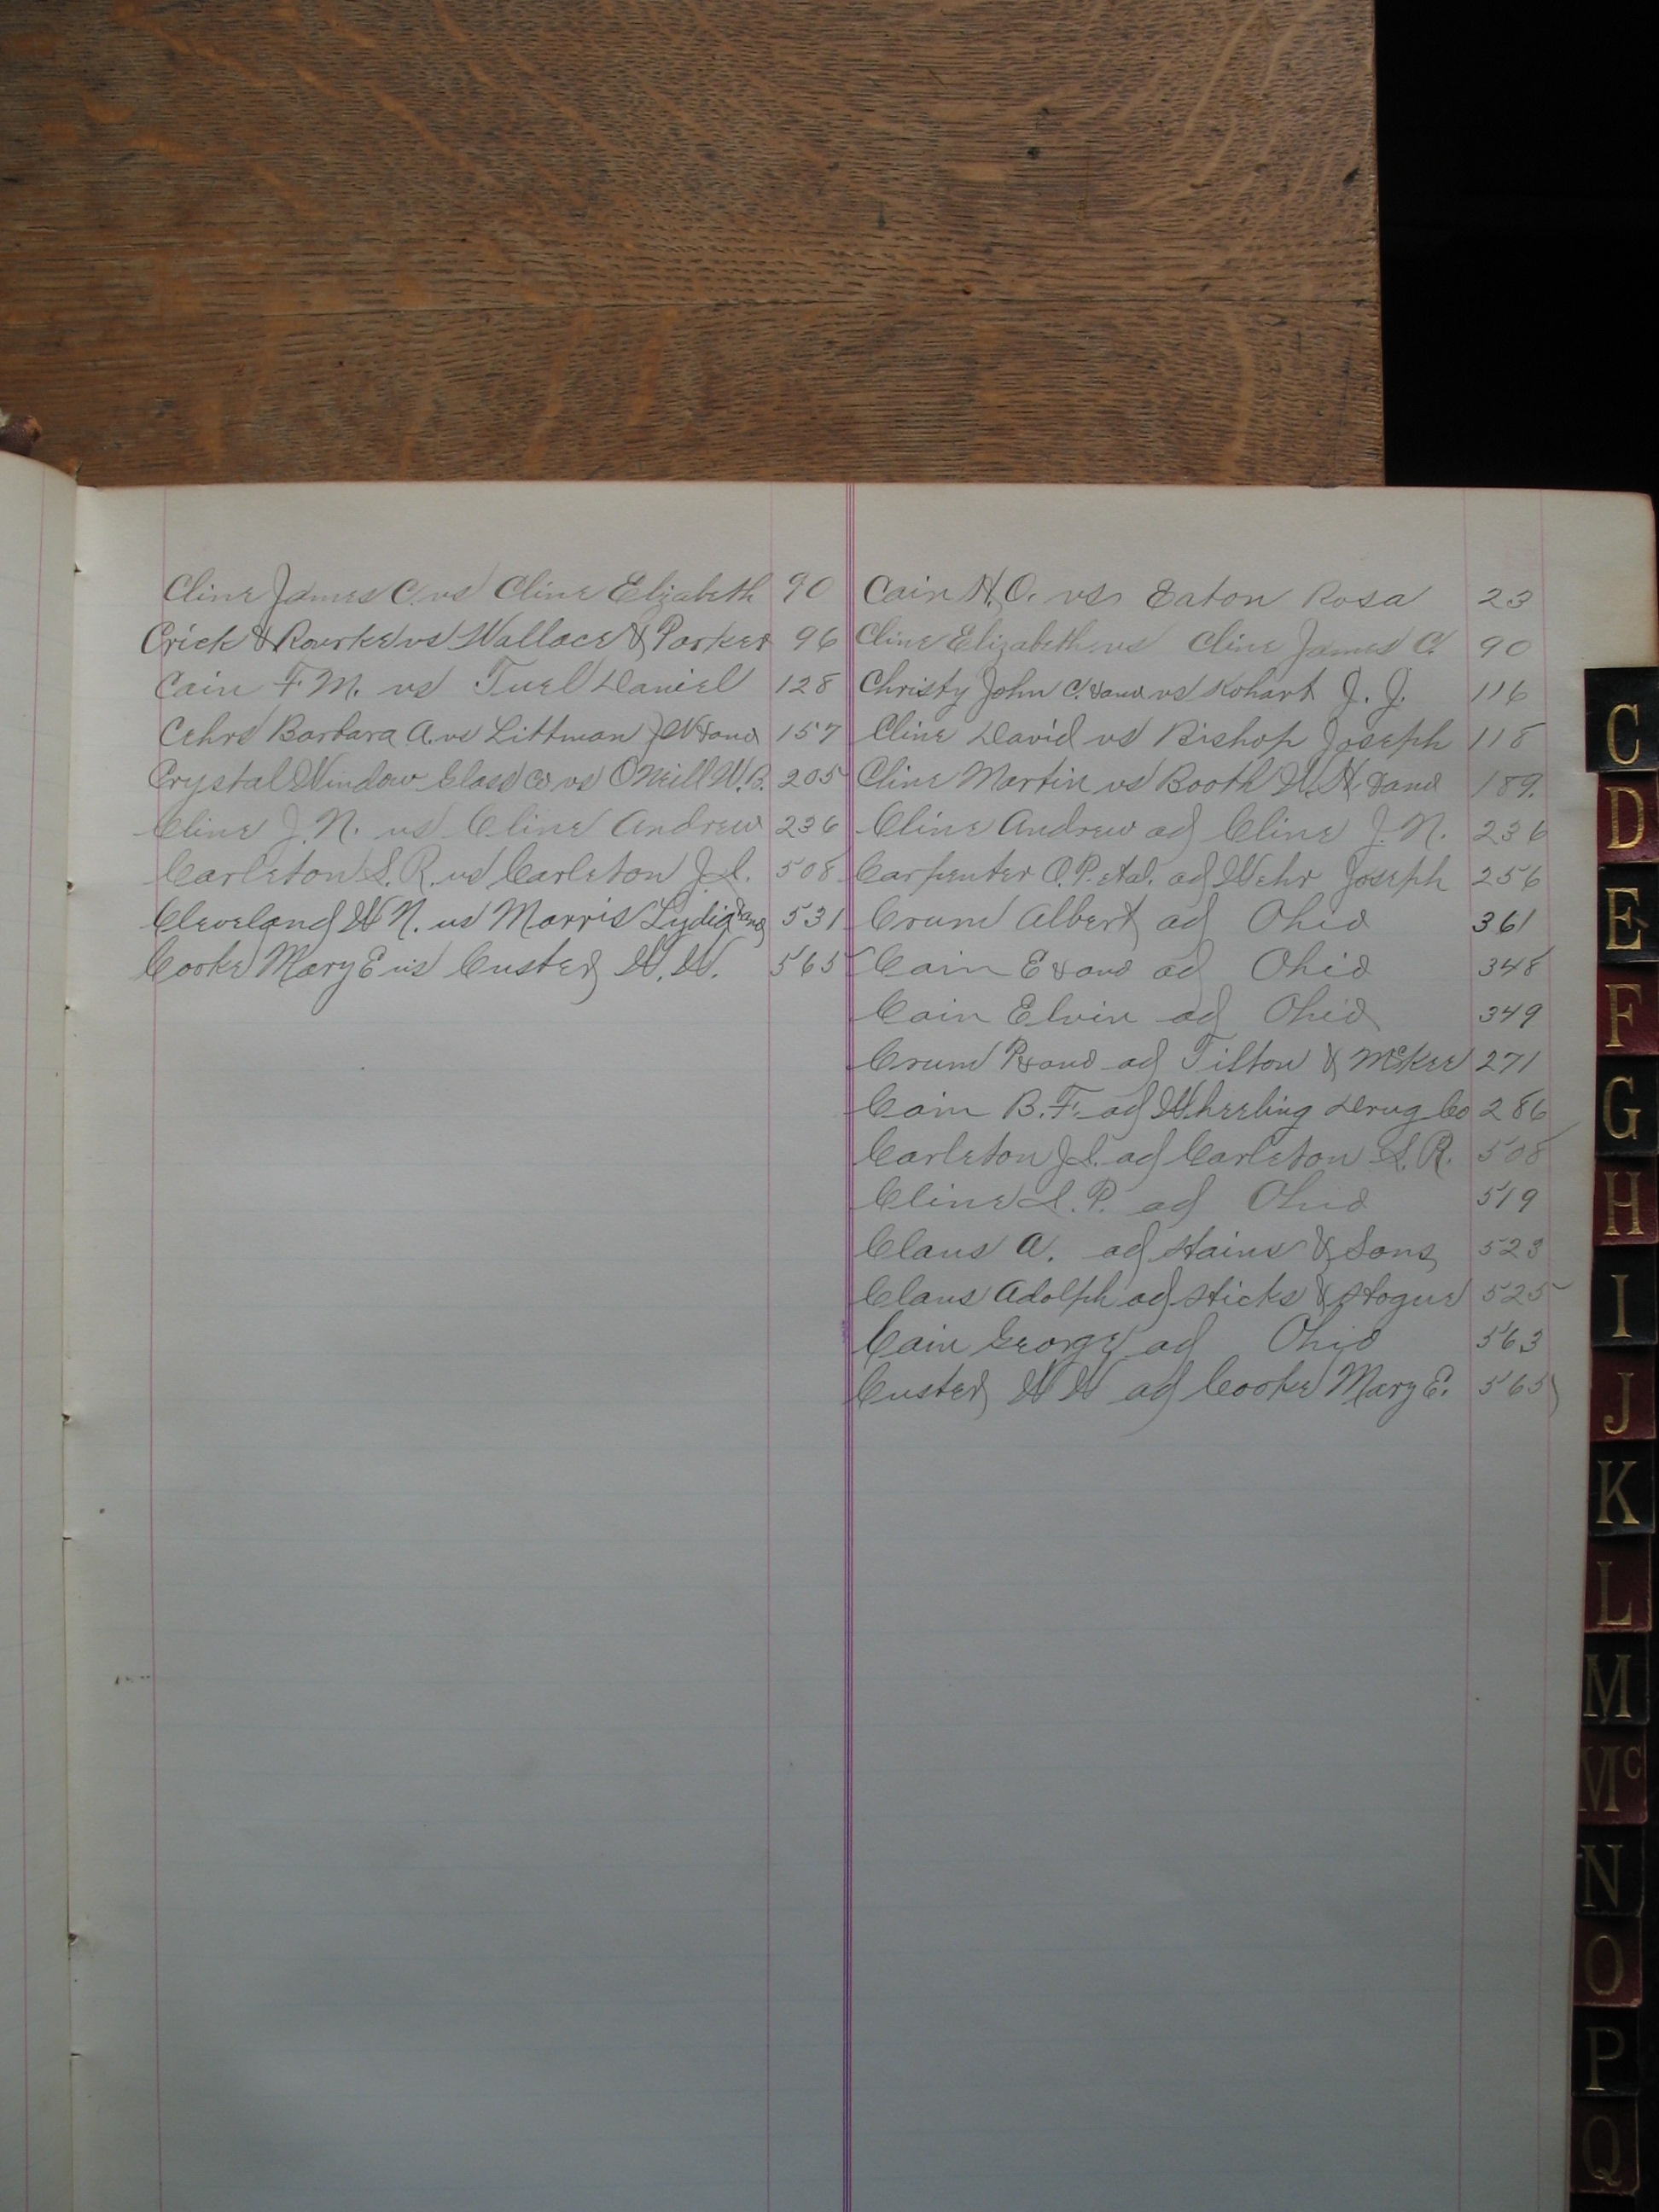 Cline James C. vs Cline Elizabeth 90
Crick & Rourke vs Wallace & Parker 96
Cain F. M. vs Tuel Daniel 128
Cehrs Barbara A. vs Littman J W & ano 157
Crystal Window Glass Co vs O'Neill W. B. 205
Cline J. N. vs Cline Andrew 236
Carleton S. R. vs Carleton J. L. 508
Cleveland W N. vs Morris Lydia & ano 531
Cooke Mary E vs Custer W. W. 565
Cain H. O. vs. Eaton Rosa 23
Cline Elizabeth vs Cline James C. 90
Christy John C. & ano vs Kohart J. J. 116
Cline David vs Bishop Joseph 118
Cline Martin vs Booth W. H. & ano 189.
Cline Andrew ad Cline J. N. 236
Carpenter O. P. et al. ad Wehr Joseph 256
Crum Albert ad Ohio 361
Cain E & ano ad Ohio 348
Cain Elvin ad Ohio 349
Crum P & ano ad Tilton & McKee 271
Cain B. F. ad Wheeling Drug Co 286
Carleton J L. ad Carleton S. R. 508
Cline S. P. ad Ohio 519
Claus A. ad & Sons 523
Claus Adolph ad & 525
Cain George ad Ohio 563
Custer W W ad Cooke Mary E. 565
C
D
E
F
G
H
I
J
K
L
M
Mc
N
O
P
Q